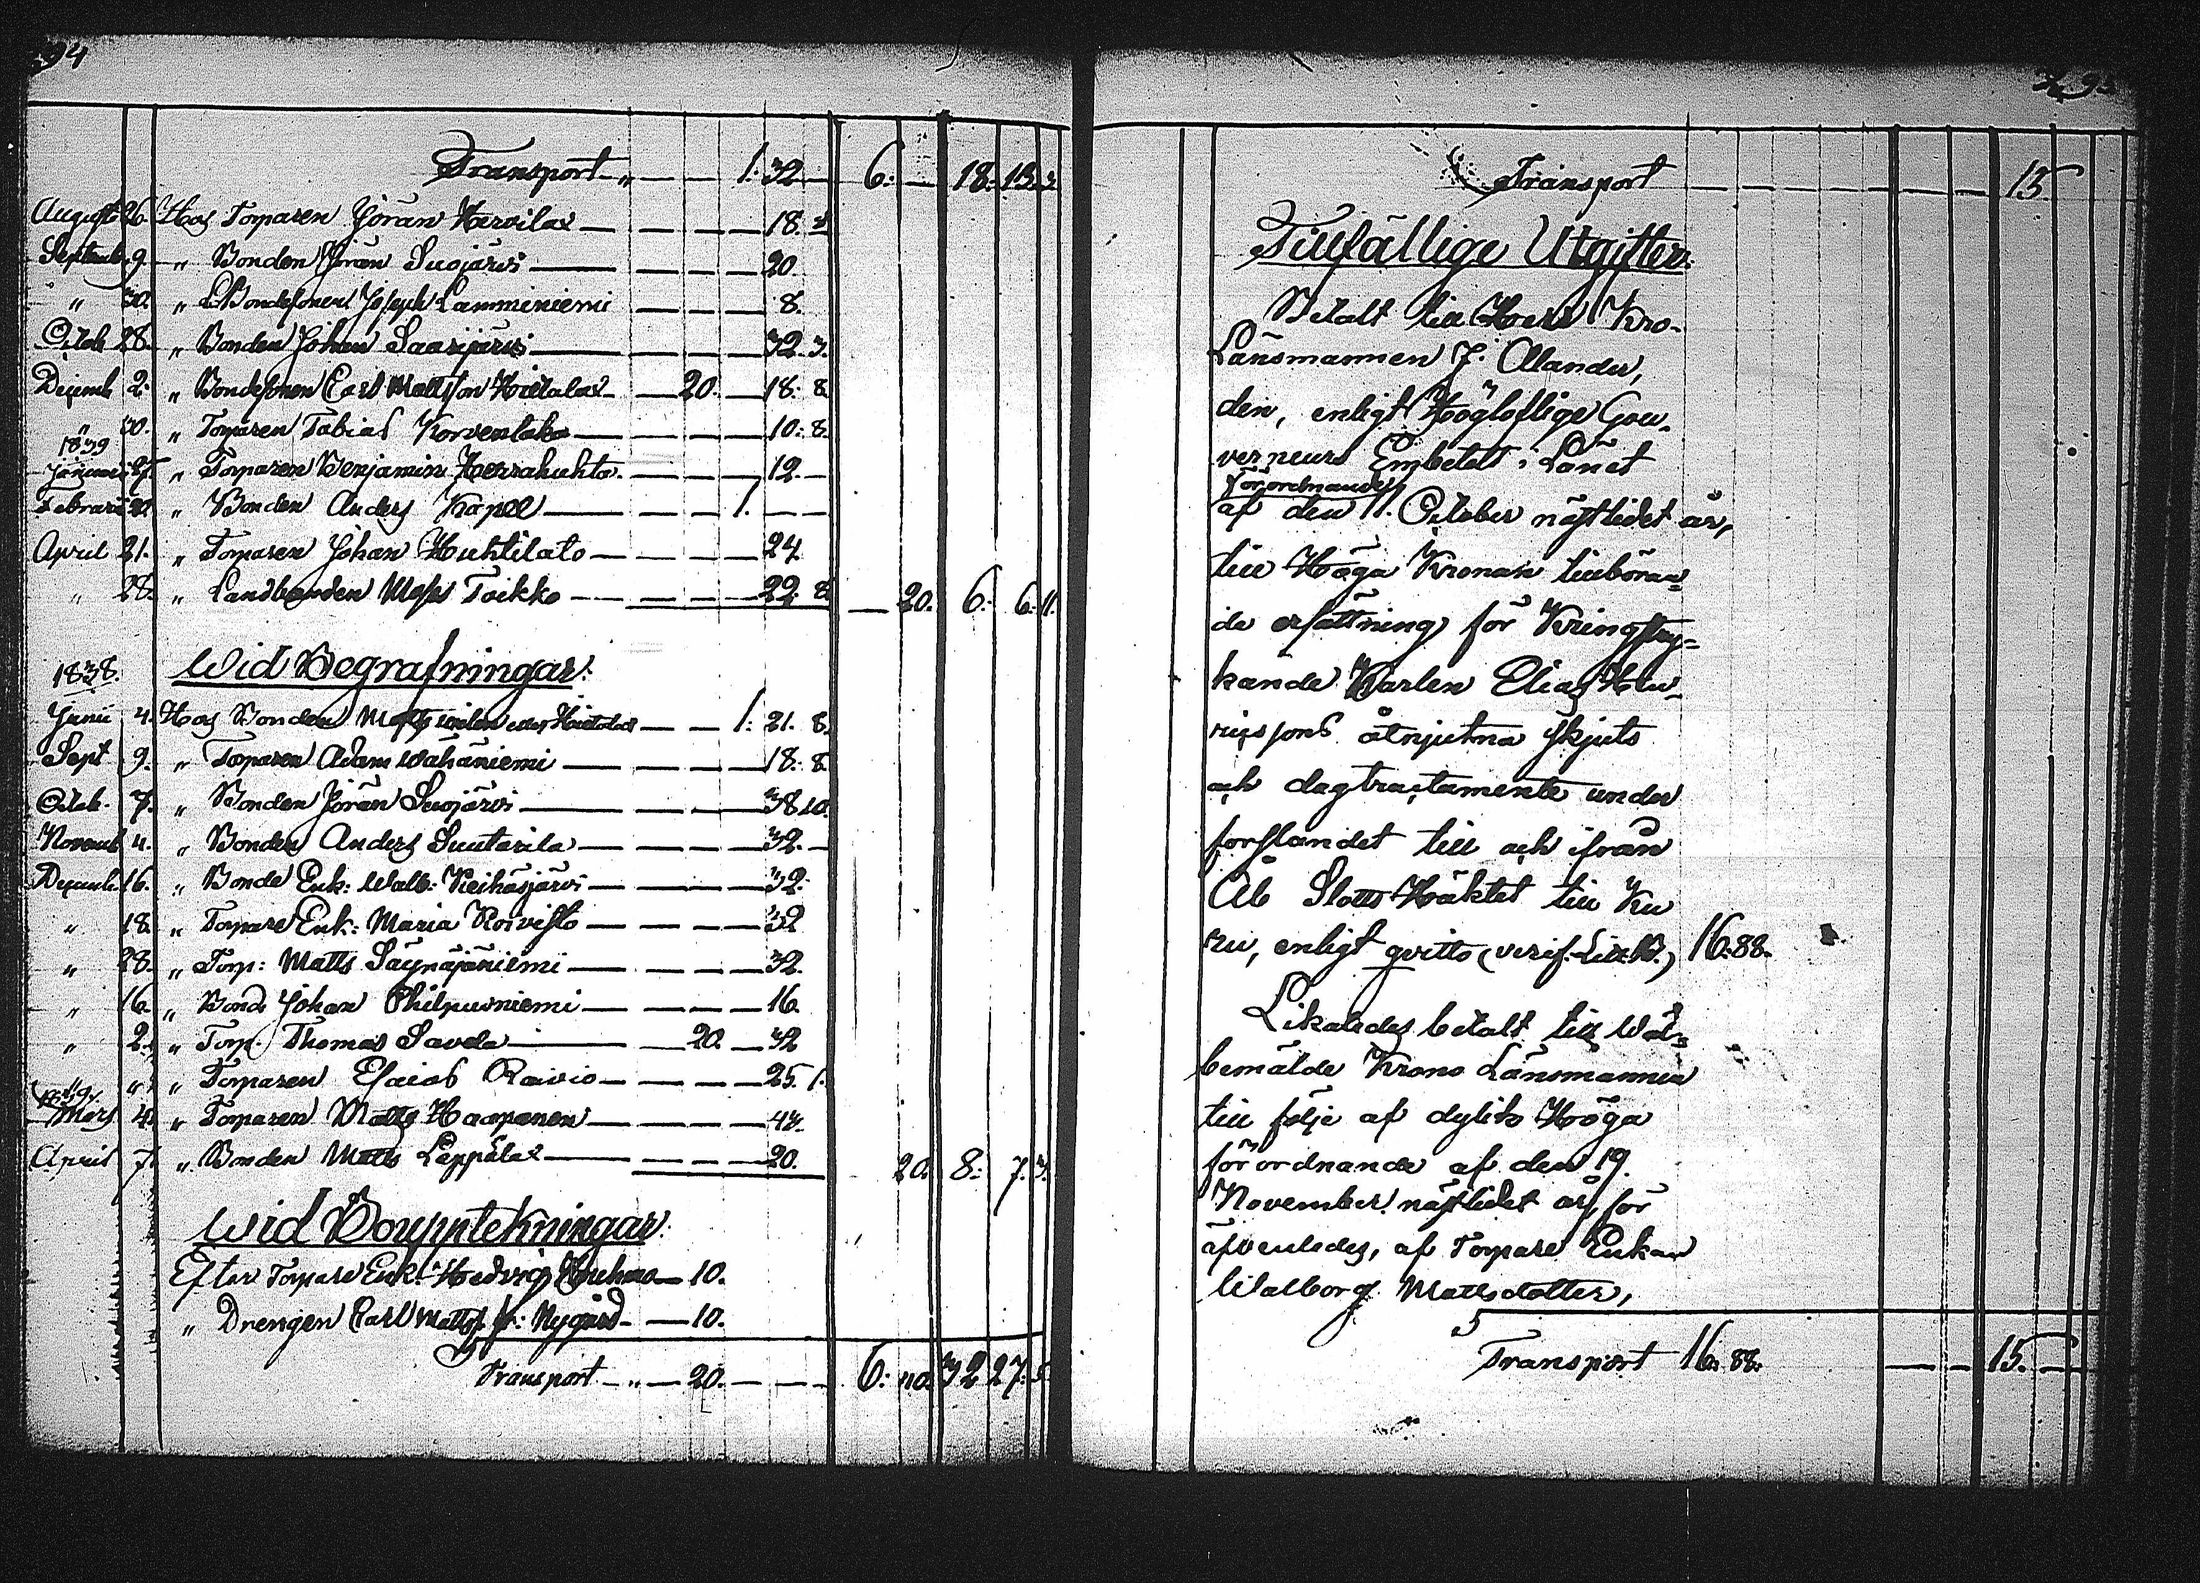 94
Transport „ — — 1: 32 — 6: — 18: 13. 3.
August 26. Hos Torparen Jöran Hervilax — — — — 18. 8
Septemb 9. „ Bonden Jöran Suojärvi — — — — 20
„ 30. „ Bondesonen Joseph Lamminiemi — — — 8.
Octob 28. „ Bonden Johan Saarijärvi — — — — 32. 3.
Decemb 2. „ Bondesonen Carl Mattsson Hietalax — 20. — 18: 8
„ 30. „ Torparen Tobias Korvenlaka — — — — 10: 8.
1839
Januari 27. „ Torparen Benjamin Herrakuhta — — — 12. —
Febrari „ Bonden Anders Kapell — — — 1. — —
April 21. „ Torparen Johan Huhtilato — — — — 24.
„ 28. „ Landbonden Moses Toikko — — — — 22. 8. — 20. 6: 6. 11.
Wid Begrafningar:
1838.
Junii 4. Hos Bonden Matts eller Hietalax — — 1: 21. 8.
Sept 9. „ Torparen Adam Wähäniemi — — — — 18: 8.
Octob. 7. „ Bonden Jöran Suojärvi — — — — 38 10.
Novemb 4. „ Bonden Anders Suutarila — — — — 32. —
Decemb 16. „ Bonde Enk: Walb: Keihäsjärvi — — — 32.
„ 18. „ Torpare Enk: Maria Koivisto — — — — 32
„ 28. „ Torp: Matts Säynäjäniemi — — — — 32.
„ 16. „ Bond. Johan Philpusniemi — — — — 16.
„ 2. „ Torp. Thomas Savela — 20. — 32
„ „ „ Torparen Esaias Raivio — — — — 25. 1.
1839.
Mars 4. „ Torparen Matts Haapanen — — — —
April 7. „ Bonden Matts Leppälax — — — — 20. 20. 8: 7. 3.
Wid Bouppteckningar:
Efter Torpare Enk: Hedvig — 10.
„ Drengen Carl Matts — Nygård — — 10.
Transport — „ — 20. — — — 6: 32 27: 5.
Transport — — — — — — 15. —
Tillfällige Utgifter.
Betalt till Herr Kro-
Länsmannen J. Alander,
den, enligt Höglöflige Gou-
verneurs Embetets i Länet
förordnande
af den 11. October nästledet år,
till Höga Kronan tillböran=
de ersättning för Kringstry=
kande Karlen Elias Hen-
ricssons åtnjutna skjuts
och dagtractamente under
forslandet till och ifrån
Åb Slotts Häktet till Ku
ru, enligt qvitto (verif. Litt. B.) 16. 88.
Likaledes betalt till Wäl=
bemälde Krono Länsmannen
till följe af dylikt Höga
förordnande af den 19.
November nästledet år, för
äfvenledes, af Torpare Enkan
Walborg Mattsdotter,
Transport 16. 88. — — 15. —